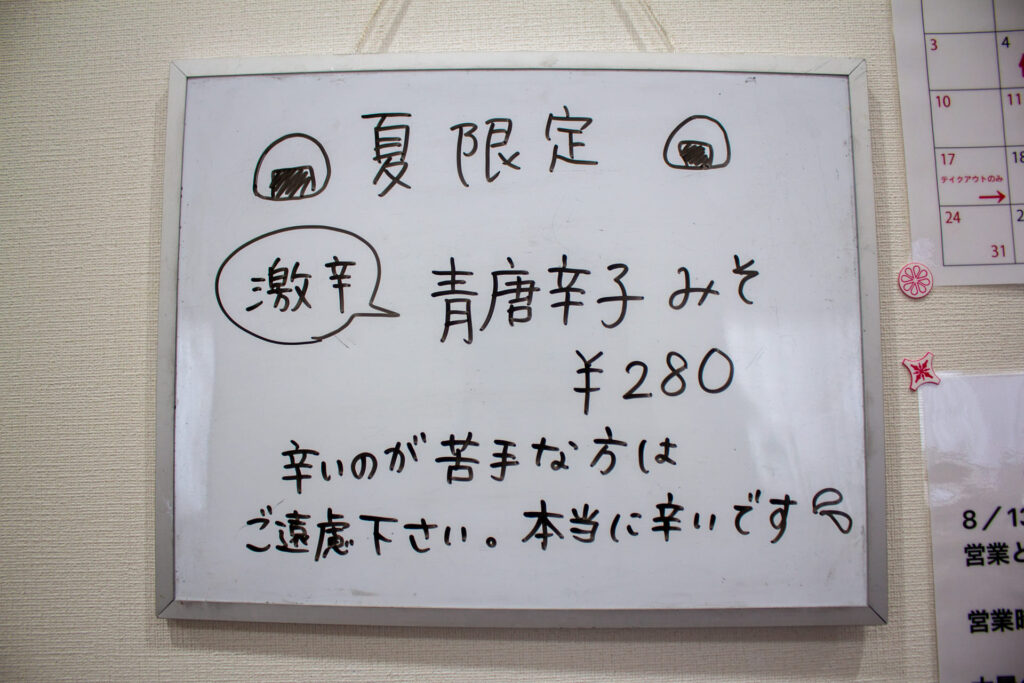 夏限定
激辛
青唐辛子みそ
¥280
辛いのが苦手な方は
ご遠慮下さい。本当に辛いです
3 4
10 11
17 18
テイクアウトのみ
24
31
8/13
営業と
営業時